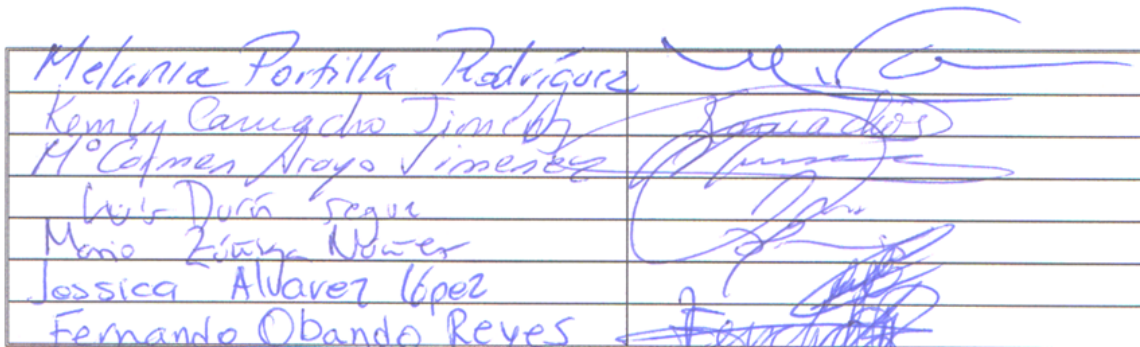 Melania Portilla Rodríguez
Kemly Camacho Jiménez
Mº Carmen Araya Jimenez
Luis Durán Segura
Mario Zúñiga Núñez
Jessica Alvarez López
Fernando Obando Reyes